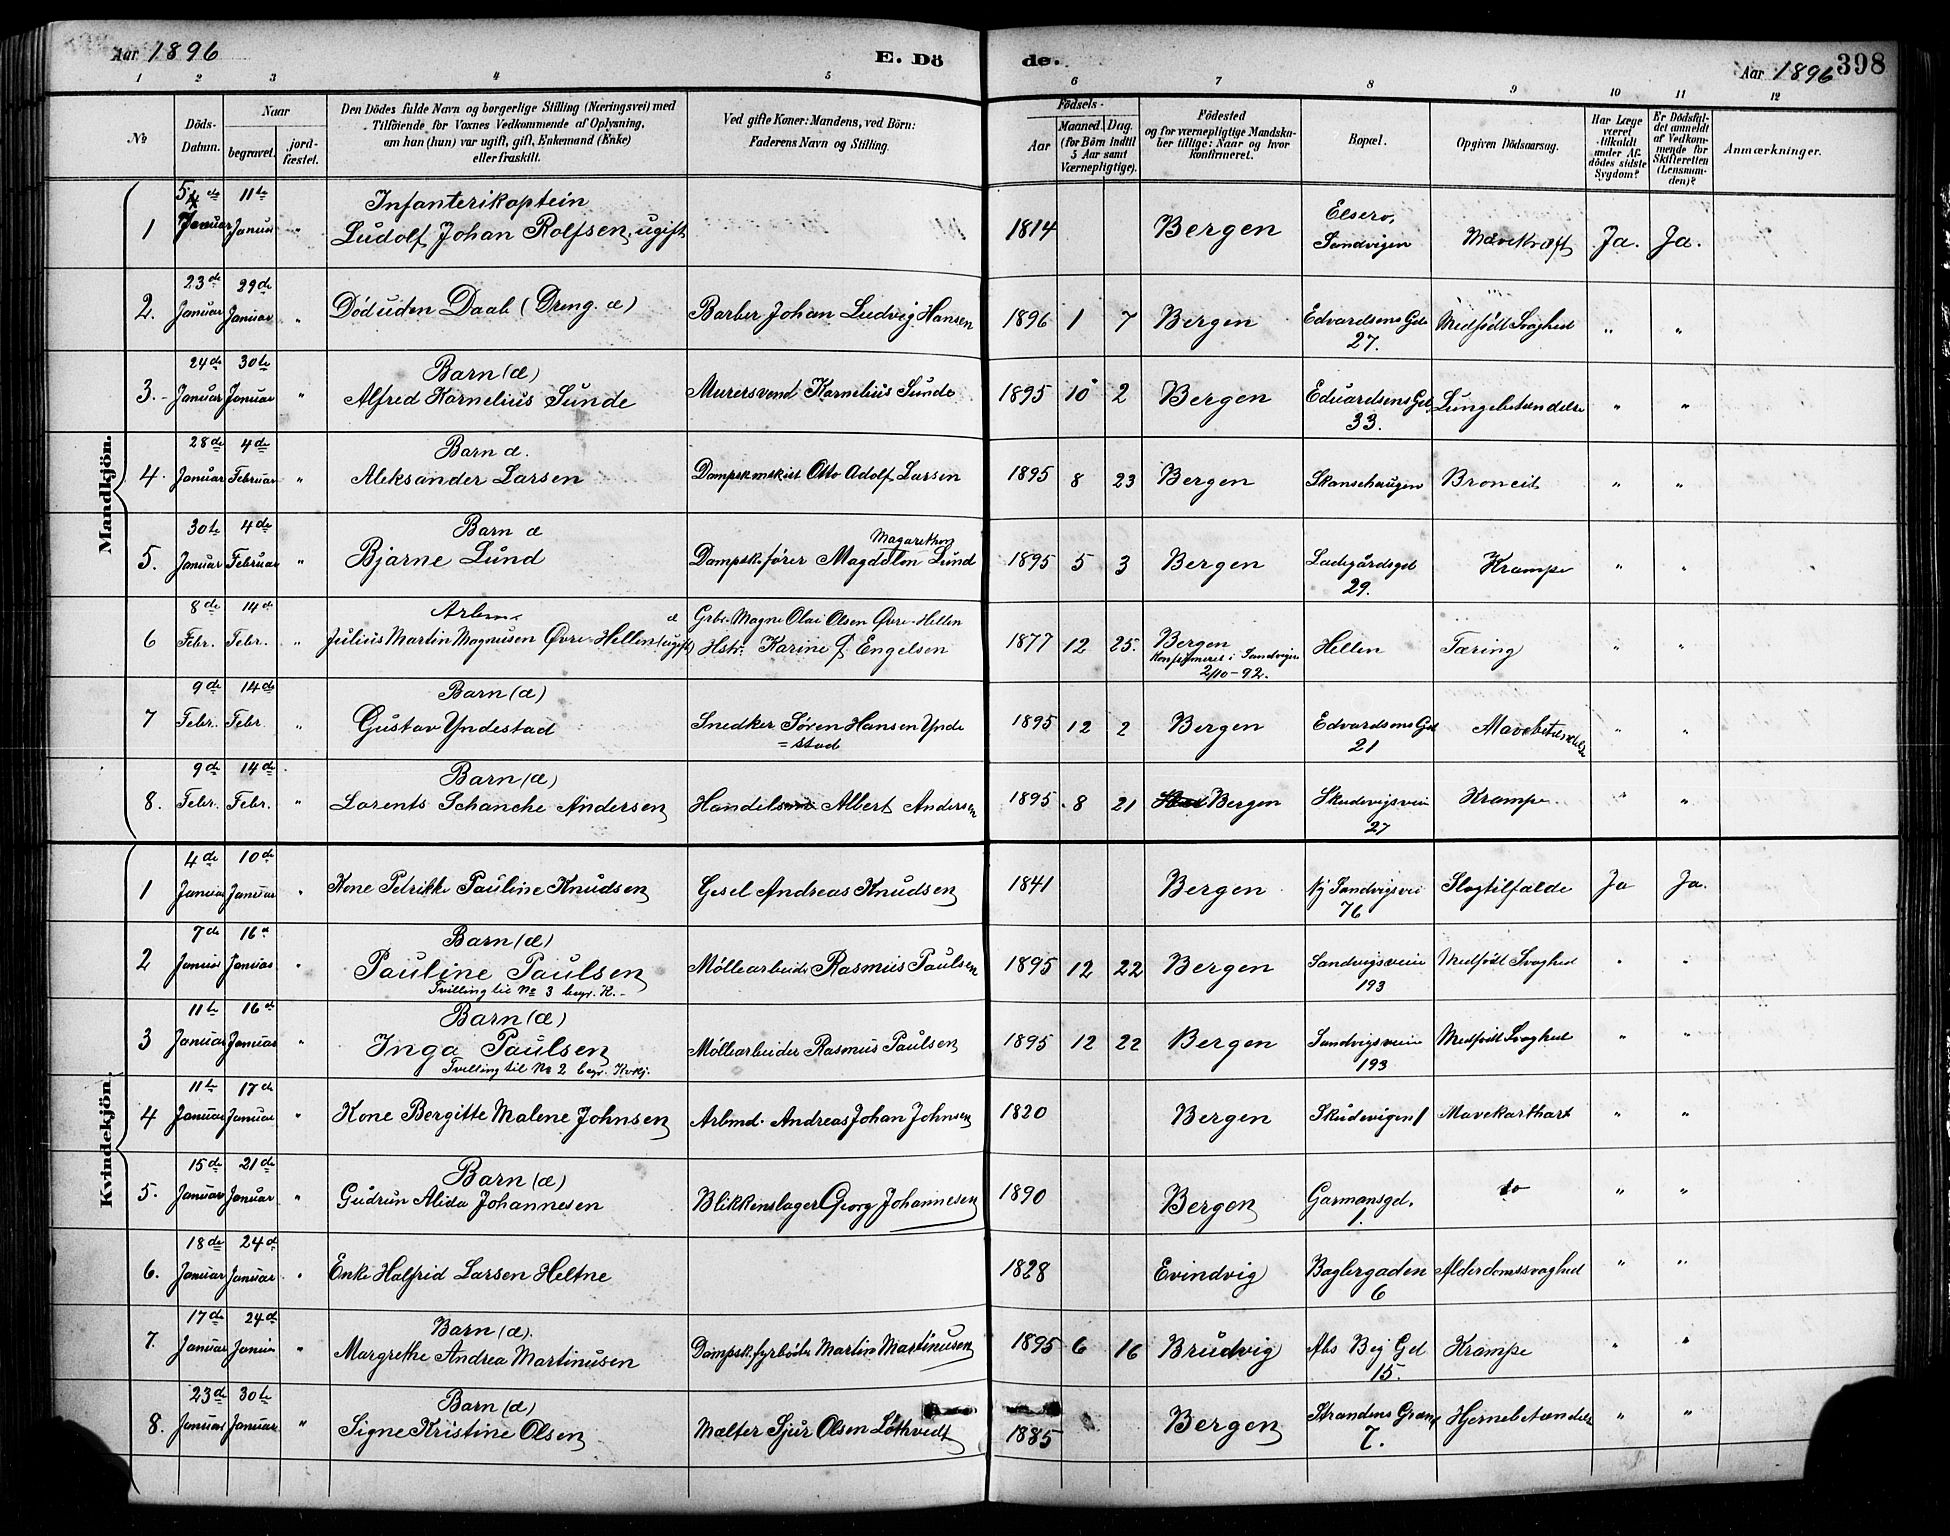 Aar 1896
E. Dö
de.
Aar 1896
398
1 2 3 4 5 6 7 8 9 10 11 12
№
Döds-
Datum.
Naar
begravet.
jord-
fæstet.
Den Dödes fulde Navn og borgerlige Stilling (Næringsvei) med
Tilföiende for Voxnes Vedkommende af Oplysning,
om han (hun) var ugift, gift, Enkemand (Enke)
eller fraskilt.
Ved gifte Koner: Mandens, ved Börn:
Faderens Navn og Stilling.
Födsels-
Aar
Maaned.
Dag.
(for Börn indtil
5 Aar samt
Værnepligtige).
Födested
og for værnepligtige Mandska-
ber tillige: Naar og hvor
konfirmeret.
Bopæl.
Opgiven Dödsaarsag.
Har Læge
været
tilkaldt
under Af-
dödes sidste
Sygdom?
Er Dödsfal-
det anmeldt
af Vedkom-
mende for
Skifteretten
(Lensman-
den)?
Anmærkninger.
Mandkjön.
1 5de Januar 11te Januar " Infanterikaptein
Ludolf Johan Rolfsen, ugift 1814 Bergen Elsero, Sandvigen Mavekræft Ja. Ja.
2. 23de Januar 29de Januar " Död uden Daab (Dreng. æ) Barber Johan Ludvig Hansen 1896 1 7 Bergen Edvardsens Gd. 27. Medfödt Svaghed " "
3. 24de Januar 30te Januar " Barn (æ)
Alfred Kornelius Sunde Murersvend Kornelius Sunde 1895 10 2 Bergen Eduardsens Gd. 33. Lungebetændelse " "
4. 28de Januar 4de Februar " Barn æ.
Aleksander Larsen Dampskmskist Otto Adolf Larsen 1895 8 23 Bergen Skansehaugen Broncit " "
5. 30te Januar 4de Februar " Barn æ
Bjarne Lund Dampsk.förer Magdalon Lund 1895 5 3 Bergen Ladegårdsgd 29. Krampe " "
6 8de Febr. 14de Febr. " Arbm. æ
Julius Martin Magnusen Øvre-Hellen (ugift) Grbr. Magne Olai Olsen Øvre-Hellen
Hstr. Karine f. Engelsen 1877 12 25. Bergen
Konfirmeret i Sandvigen
2/10-92. Hellen Tæring " "
7 9de Febr. 14de Febr. " Barn (æ)
Gustav Yndestad Snedker Sören Hansen Ynde
=stad 1895 12 2 Bergen Edvardsens Gd 21 Mavebetændelse " "
8. 9de Febr. 14de Febr. " Barn (æ)
Lorents Schanche Andersen Handelsmd Albert Andersen 1895 8 21 Bergen Skudevigsvei 27 Krampe " "
Kvindekjön.
1 4de Januar 10de Januar " Kone Petrikke Pauline Knudsen Gesel Andreas Knudsen 1841 Bergen Ny Sandvigsvei 76 Slagtilfælde Ja Ja.
2 7de Januar 16de Januar " Barn (æ)
Pauline Paulsen
Tvilling til № 3 begr. K. Möllearbeider Rasmus Paulsen 1895 12 22 Bergen Sandvigsveien 193 Medfödt Svaghed " "
3 11te Januar 16de Januar " Barn (æ)
Inga Paulsen
Tvilling til № 2 begr. Kvkj. Möllearbeider Rasmus Paulsen 1895 12 22 Bergen Sandvigsveien 193 Medfödt Svaghed " "
4 11te Januar 17de Januar " Kone Bergitte Malene Johnsen Arbmd. Andreas Johan Johnsen 1820 Bergen Skudevigen 1 Mavekarthart " "
5. 15de Januar 21de Januar " Barn (æ)
Gudrun Alida Johannesen Blikkenslager Georg Johannesen 1890 Bergen Garmansgd. 1. do " "
6. 18de Januar 24de Januar " Enke Halfrid Larsen Heltne 1828 Evindvig Baglergaden 6 Alderdomssvaghed " "
7. 17de Januar 24de Januar " Barn (æ).
Margrethe Andrea Martinusen Dampsk.fyrböder Martin Martinusen 1895 6 16 Brudvig Abs Bej Gd 15. Krampe " "
8. 23de Januar 30te Januar " Barn (æ)
Signe Kristine Olsen Mælter Sjur Olsen Löthvedt 1885 Bergen Strandens Grænd 7. Hjernebetændelse " "